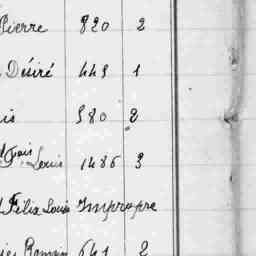 Pierre 820 2
Désiré 449 1
is 580 2
fçois Louis 1486 3
Félix Louis Impropre
Romain 641 2